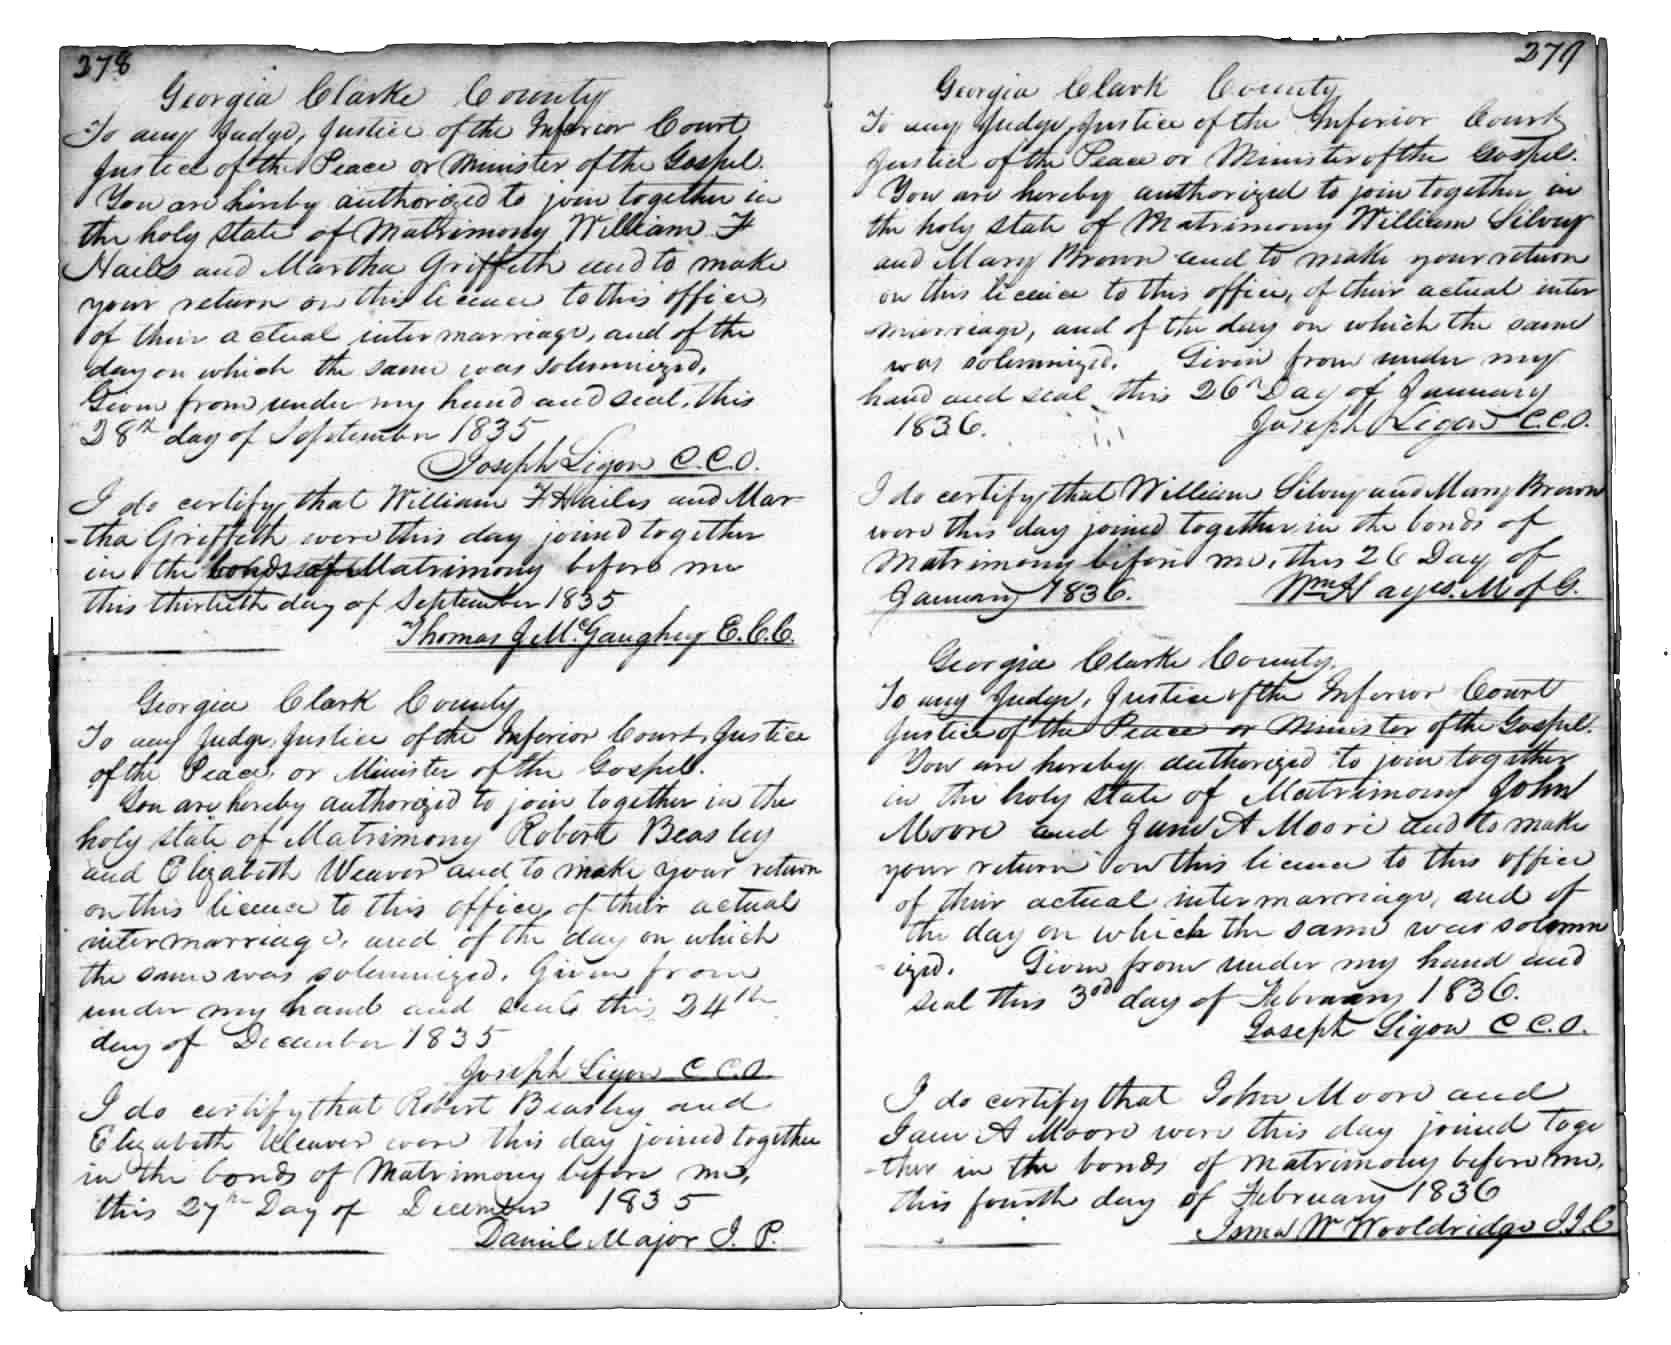 278
Georgia Clarke County
To any Judge, Justice of the Inferior Court
Justice of the Peace or Minister of the Gospel.
You are hereby authorized to join together in
the holy state of Matrimony William F
Hailes and Martha Griffeth and to make
your return on this licence to this office,
of their actual intermarriage, and of the
day on which the same was solemnized.
Given from under my hand and seal, this
28th day of September 1835
Joseph Ligon C.C.O.
I do certify that William F Hailes and Mar
-tha Griffeth were this day joined together
in the bonds of Matrimony before me
this thirtieth day of September 1835
Thomas J McGaughey E.C.C.
Georgia Clark County
To any Judge, Justice of the Inferior Court, Justice
of the Peace, or Minister of the Gospel.
You are hereby authorized to join together in the
holy state of Matrimony Robert Beasley
and Elizabeth Weaver and to make your return
on this licence to this office, of their actual
intermarriage, and of the day on which
the same was solemnized. Given from
under my hand and seal this 24th
day of December 1835
Joseph Ligon C C.O.
I do certify that Robert Beasley and
Elizabeth Weaver were this day joined together
in the bonds of Matrimony before me,
this 27th Day of December 1835
Daniel Major J. P.
279
Georgia Clark County
To any Judge, Justice of the Inferior Court
Justice of the Peace or Minister of the Gospel.
You are hereby authorized to join together in
the holy state of Matrimony William Silvey
and Mary Brown and to make your return
on this licence to this office, of their actual inter
marriage, and of the day on which the same
was solemnized. Given from under my
hand and seal this 26th Day of January
1836. Joseph Ligon C.C.O.
I do certify that William Silvey and Mary Brown
were this day joined together in the bonds of
Matrimony before me, this 26 Day of
January 1836. Wm Hayes. M of G.
Georgia Clarke County.
To any Judge, Justice of the Inferior Court
Justice of the Peace or Minister of the Gospel.
You are hereby authorized to join together
in the holy state of Matrimony John
Moore and Jane A Moore and to make
your return on this licence to this office
of their actual intermarriage, and of
the day on which the same was solemn
ized. Given from under my hand and
seal this 3rd day of February 1836.
Joseph Ligon C C.O.
I do certify that John Moore and
Jane A Moore were this day joined toge
-ther in the bonds of matrimony before me,
this fourth day of February 1836
W Wooldridge J.I.C